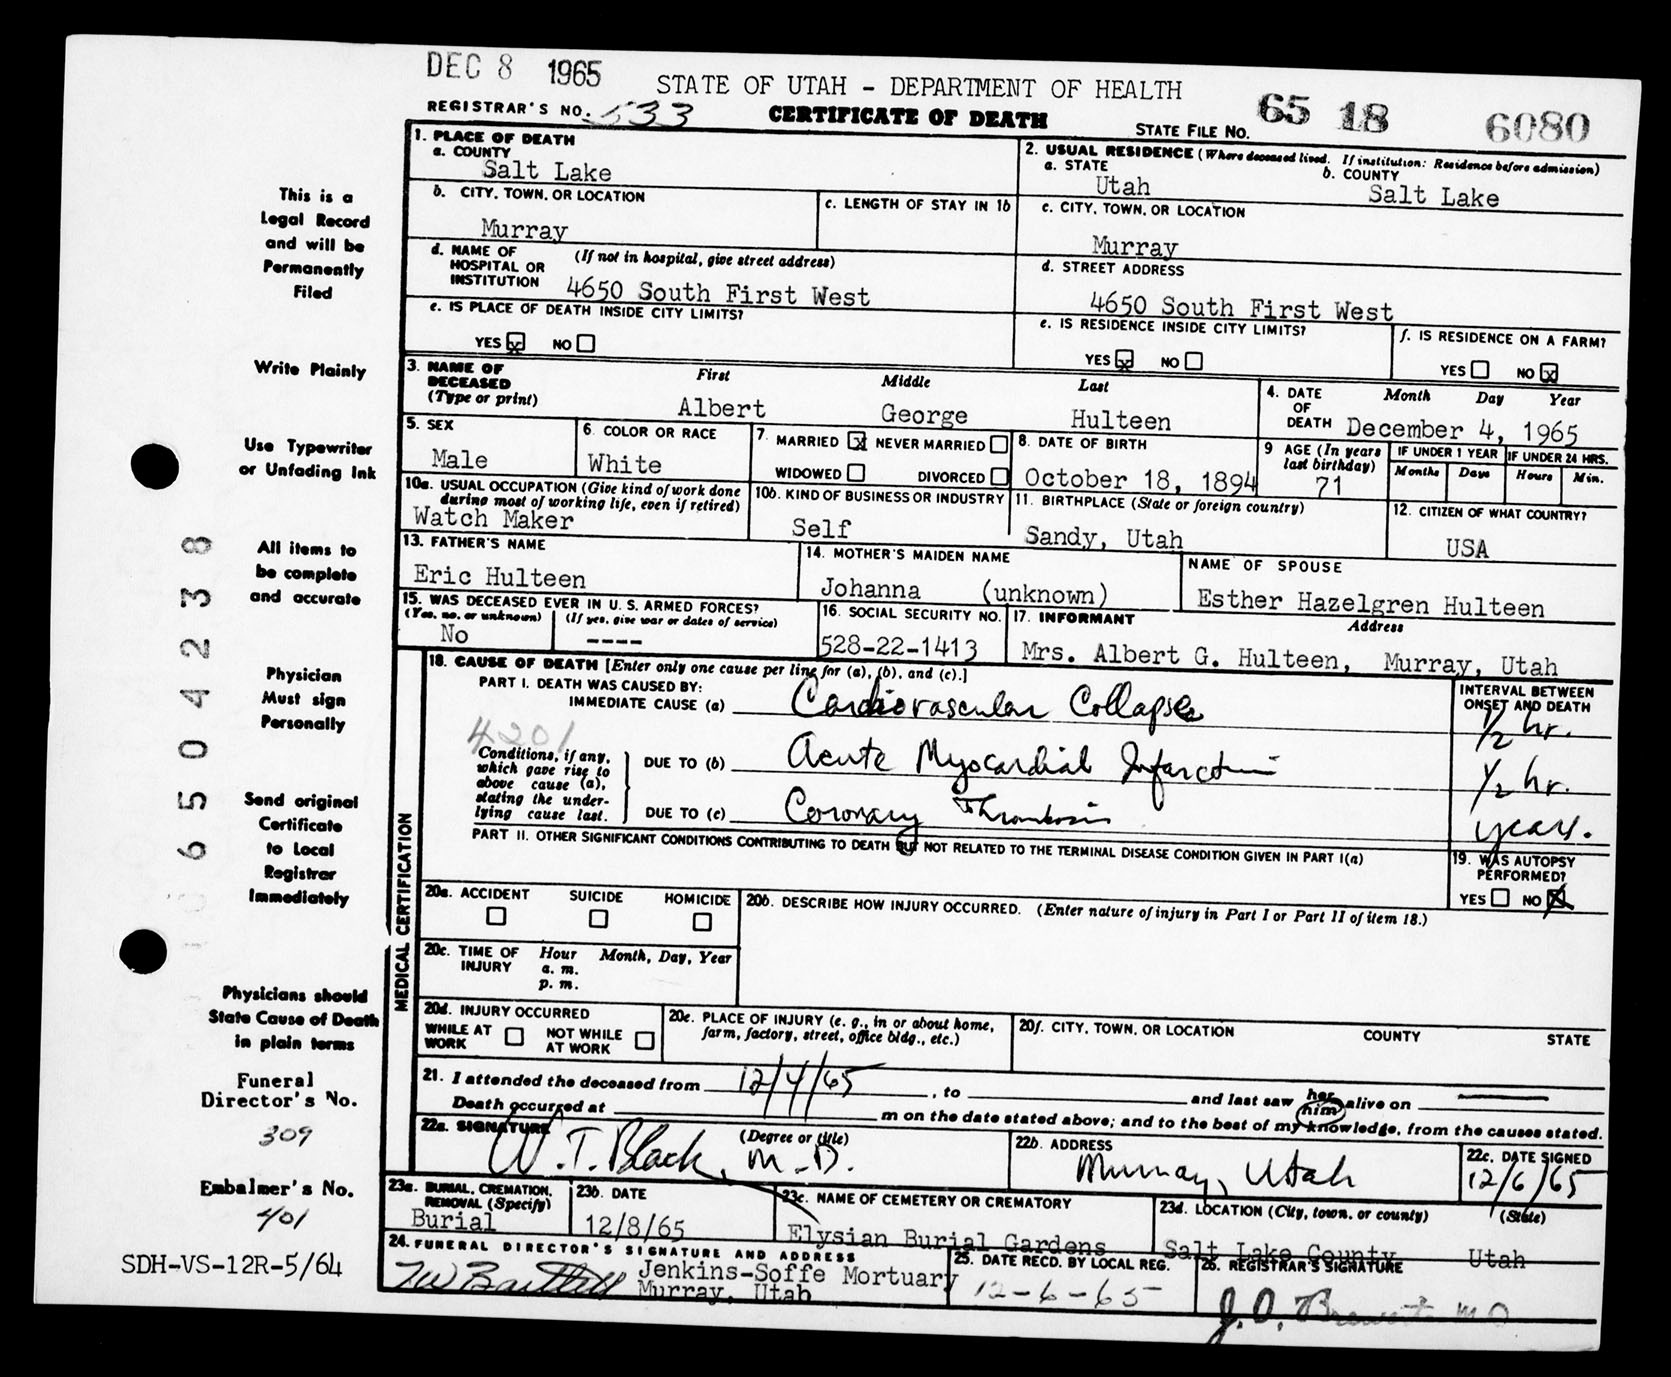 DEC 8 1965
STATE OF UTAH - DEPARTMENT OF HEALTH
REGISTRAR'S NO. 533
CERTIFICATE OF DEATH
STATE FILE NO. 65 18 6080
1. PLACE OF DEATH
a. COUNTY
Salt Lake
2. USUAL RESIDENCE (Where deceased lived. If institution: Residence before admission)
a. STATE
Utah
b. COUNTY
Salt Lake
b. CITY, TOWN, OR LOCATION
Murray
c. LENGTH OF STAY IN 1b
c. CITY, TOWN, OR LOCATION
Murray
d. NAME OF HOSPITAL OR INSTITUTION (If not in hospital, give street address)
4650 South First West
d. STREET ADDRESS
4650 South First West
e. IS PLACE OF DEATH INSIDE CITY LIMITS?
YES x NO
e. IS RESIDENCE INSIDE CITY LIMITS?
YES x NO
f. IS RESIDENCE ON A FARM?
YES NO x
3. NAME OF DECEASED (Type or print)
First Middle Last
Albert George Hulteen
4. DATE OF DEATH Month Day Year
December 4, 1965
5. SEX
Male
6. COLOR OR RACE
White
7. MARRIED x NEVER MARRIED
WIDOWED DIVORCED
8. DATE OF BIRTH
October 18, 1894
9 AGE (In years last birthday)
71
IF UNDER 1 YEAR
Months Days
IF UNDER 24 HRS.
Hours Min.
10a. USUAL OCCUPATION (Give kind of work done during most of working life, even if retired)
Watch Maker
10b. KIND OF BUSINESS OR INDUSTRY
Self
11. BIRTHPLACE (State or foreign country)
Sandy, Utah
12. CITIZEN OF WHAT COUNTRY?
USA
13. FATHER'S NAME
Eric Hulteen
14. MOTHER'S MAIDEN NAME
Johanna (unknown)
NAME OF SPOUSE
Esther Hazelgren Hulteen
15. WAS DECEASED EVER IN U. S. ARMED FORCES?
(Yes, no, or unknown) (If yes, give war or dates of service)
No ----
16. SOCIAL SECURITY NO.
528-22-1413
17. INFORMANT Address
Mrs. Albert G. Hulteen, Murray, Utah
MEDICAL CERTIFICATION
18. CAUSE OF DEATH [Enter only one cause per line for (a), (b), and (c).]
PART I. DEATH WAS CAUSED BY:
IMMEDIATE CAUSE (a) Cardiovascular Collapse
INTERVAL BETWEEN ONSET AND DEATH
1/2 hr.
4201
Conditions, if any, which gave rise to above cause (a), stating the underlying cause last.
DUE TO (b) Acute Myocardial Infarction
1/2 hr.
DUE TO (c) Coronary Thrombosis
years.
PART II. OTHER SIGNIFICANT CONDITIONS CONTRIBUTING TO DEATH BUT NOT RELATED TO THE TERMINAL DISEASE CONDITION GIVEN IN PART I(a)
19. WAS AUTOPSY PERFORMED?
YES NO X
20a. ACCIDENT SUICIDE HOMICIDE
20b. DESCRIBE HOW INJURY OCCURRED. (Enter nature of injury in Part I or Part II of item 18.)
20c. TIME OF INJURY Hour Month, Day, Year
a. m.
p. m.
20d. INJURY OCCURRED
WHILE AT WORK NOT WHILE AT WORK
20e. PLACE OF INJURY (e. g., in or about home, farm, factory, street, office bldg., etc.)
20f. CITY, TOWN, OR LOCATION COUNTY STATE
21. I attended the deceased from 12/4/65, to and last saw her him alive on
Death occurred at m on the date stated above; and to the best of my knowledge, from the causes stated.
22a. SIGNATURE (Degree or title)
W. T. Black, M.D.
22b. ADDRESS
Murray, Utah
22c. DATE SIGNED
12/6/65
23a. BURIAL, CREMATION, REMOVAL (Specify)
Burial
23b. DATE
12/8/65
23c. NAME OF CEMETERY OR CREMATORY
Elysian Burial Gardens
23d. LOCATION (City, town, or county) (State)
Salt Lake County Utah
24. FUNERAL DIRECTOR'S SIGNATURE AND ADDRESS
Jenkins-Soffe Mortuary
Murray, Utah
25. DATE RECD. BY LOCAL REG.
12-6-65
26. REGISTRAR'S SIGNATURE
This is a
Legal Record
and will be
Permanently
Filed
Write Plainly
Use Typewriter
or Unfading Ink
All items to
be complete
and accurate
Physician
Must sign
Personally
Send original
Certificate
to Local
Registrar
Immediately
Physicians should
State Cause of Death
in plain terms
Funeral
Director's No.
309
Embalmer's No.
401
SDH-VS-12R-5/64
6 5 0 4 2 3 8